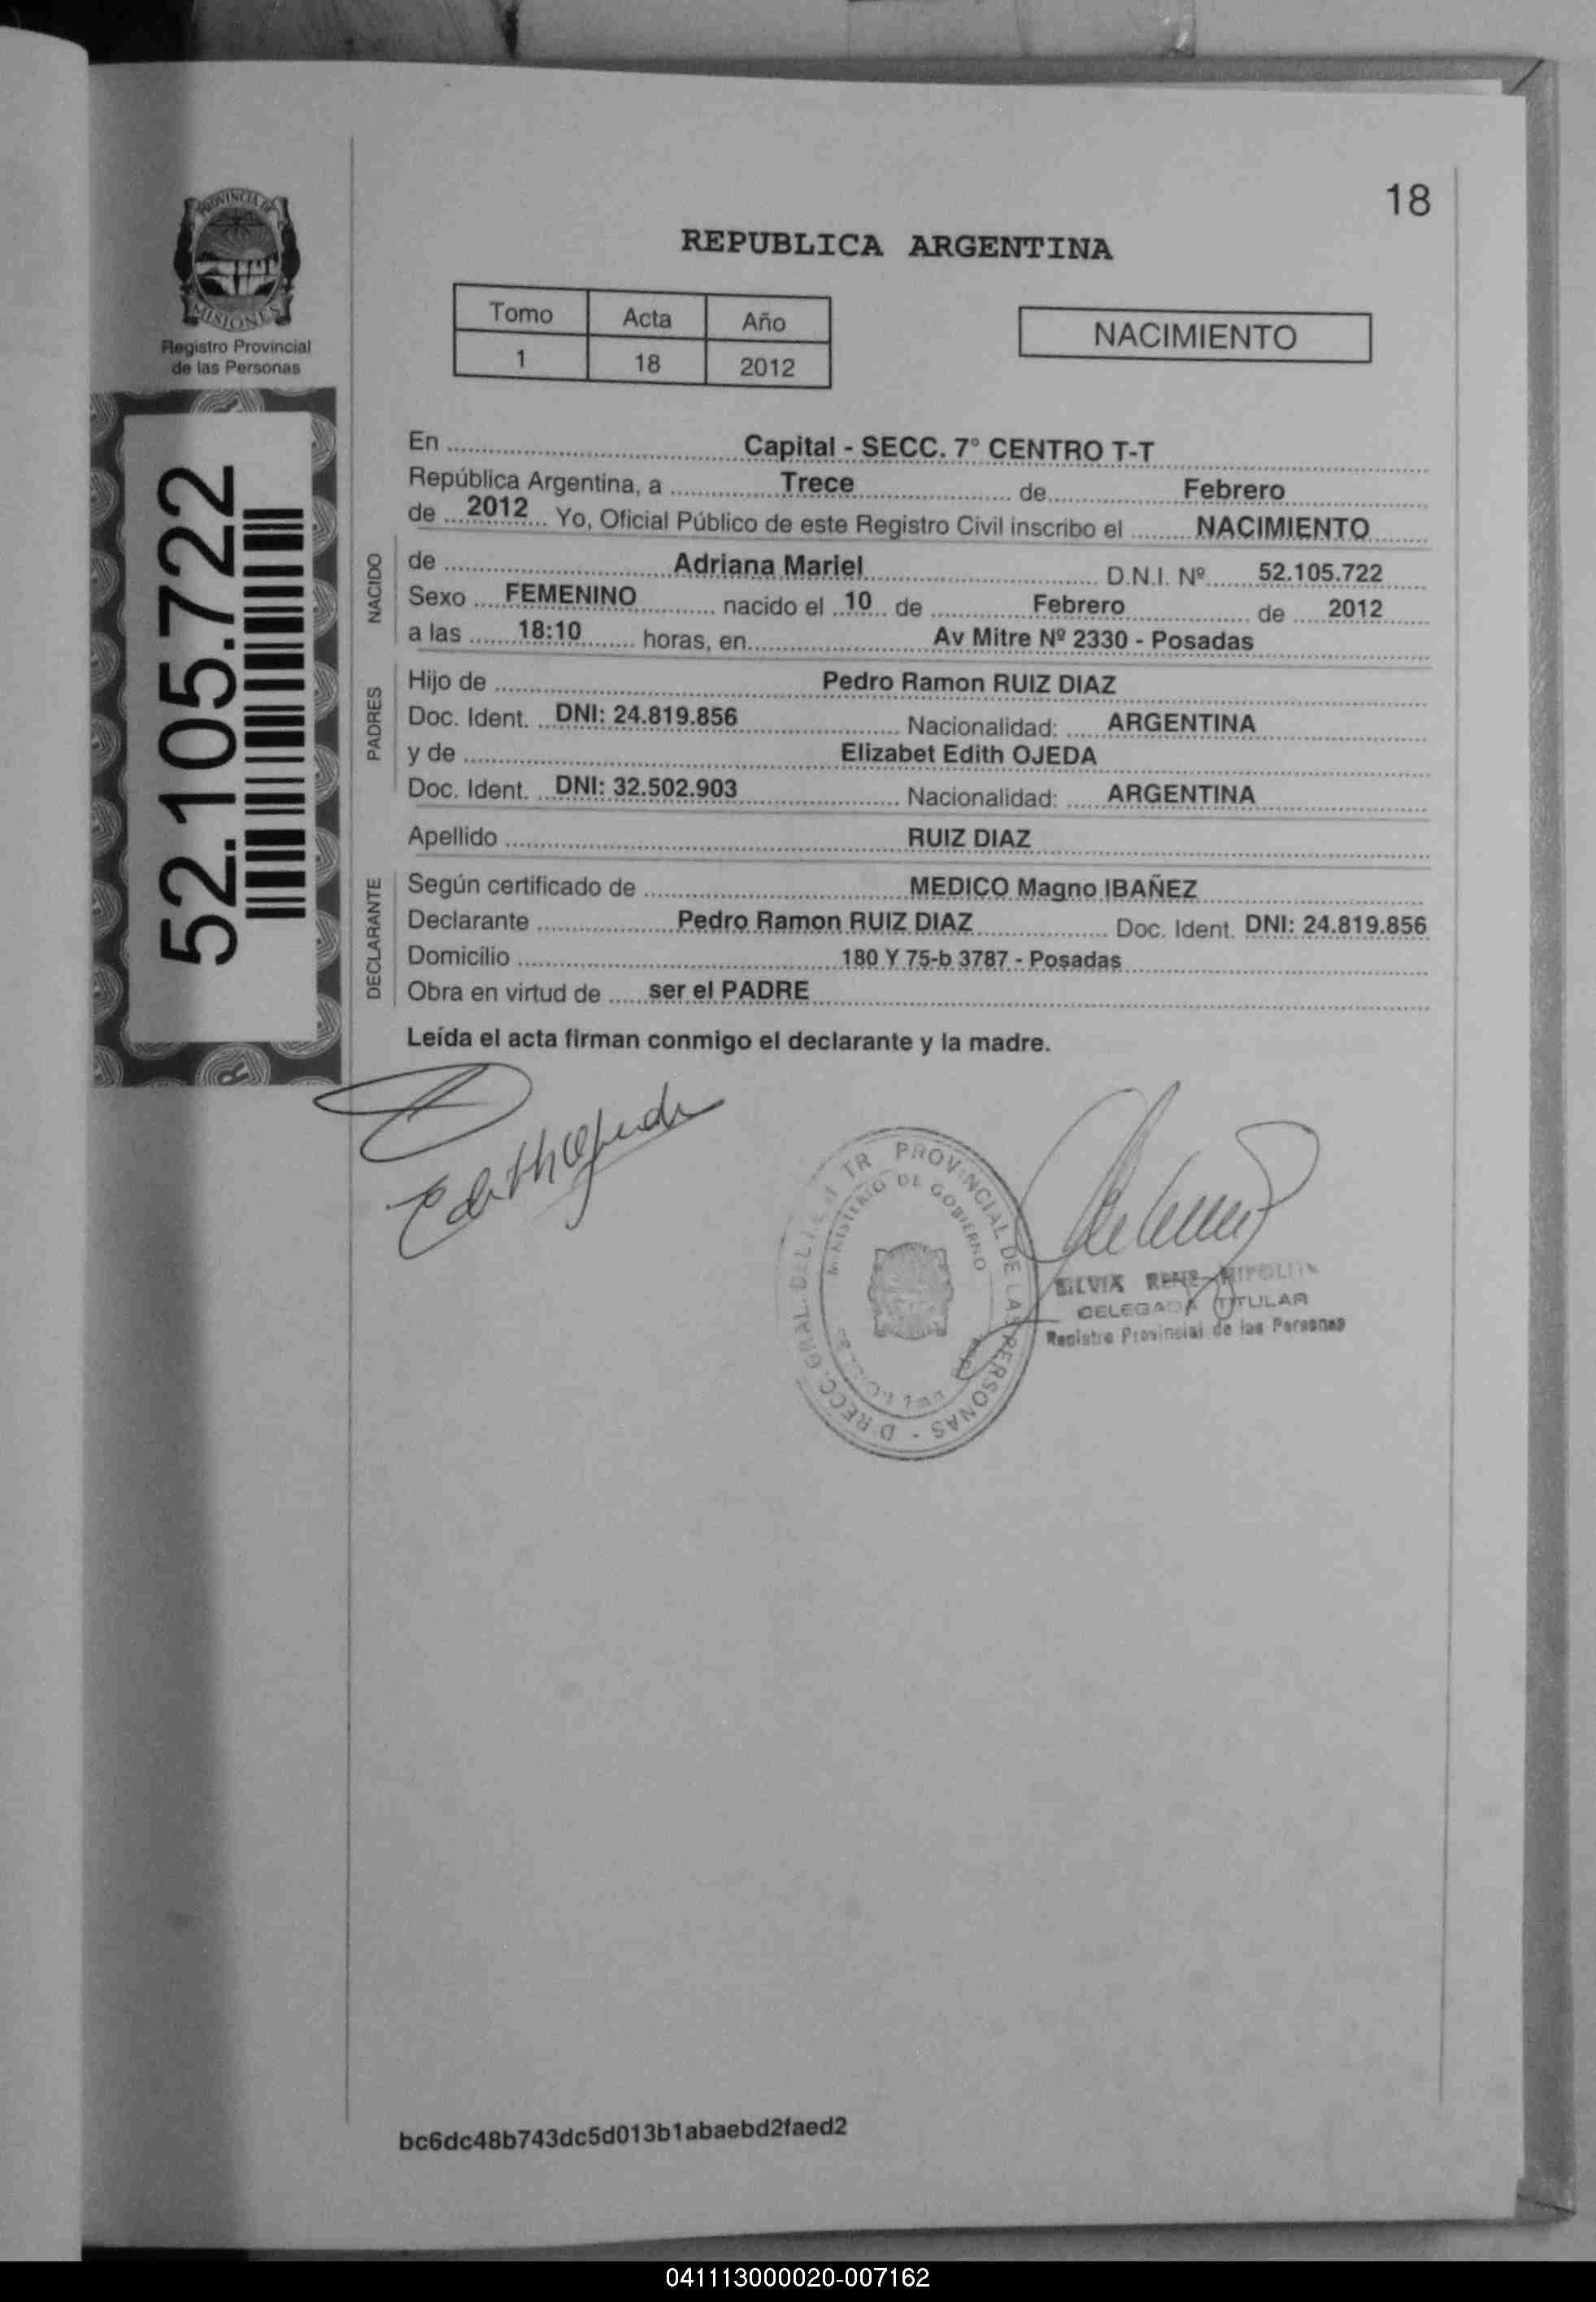 18
REPUBLICA ARGENTINA
PROVINCIA DE
MISIONES
Registro Provincial
de las Personas
Tomo Acta Año
1 18 2012
NACIMIENTO
52.105.722
En Capital - SECC. 7° CENTRO T-T
República Argentina, a Trece de Febrero
de 2012 Yo, Oficial Público de este Registro Civil inscribo el NACIMIENTO
NACIDO
de Adriana Mariel D.N.I. Nº 52.105.722
Sexo FEMENINO nacido el 10 de Febrero de 2012
a las 18:10 horas, en Av Mitre Nº 2330 - Posadas
PADRES
Hijo de Pedro Ramon RUIZ DIAZ
Doc. Ident. DNI: 24.819.856 Nacionalidad: ARGENTINA
y de Elizabet Edith OJEDA
Doc. Ident. DNI: 32.502.903 Nacionalidad: ARGENTINA
Apellido RUIZ DIAZ
DECLARANTE
Según certificado de MEDICO Magno IBAÑEZ
Declarante Pedro Ramon RUIZ DIAZ Doc. Ident. DNI: 24.819.856
Domicilio 180 Y 75-b 3787 - Posadas
Obra en virtud de ser el PADRE
Leída el acta firman conmigo el declarante y la madre.
Edith Ojeda
PROVINCIAL DE LAS PERSONAS
MINISTERIO DE GOBIERNO
DELEGADA TITULAR
Registro Provincial de las Personas
bc6dc48b743dc5d013b1abaebd2faed2
041113000020-007162